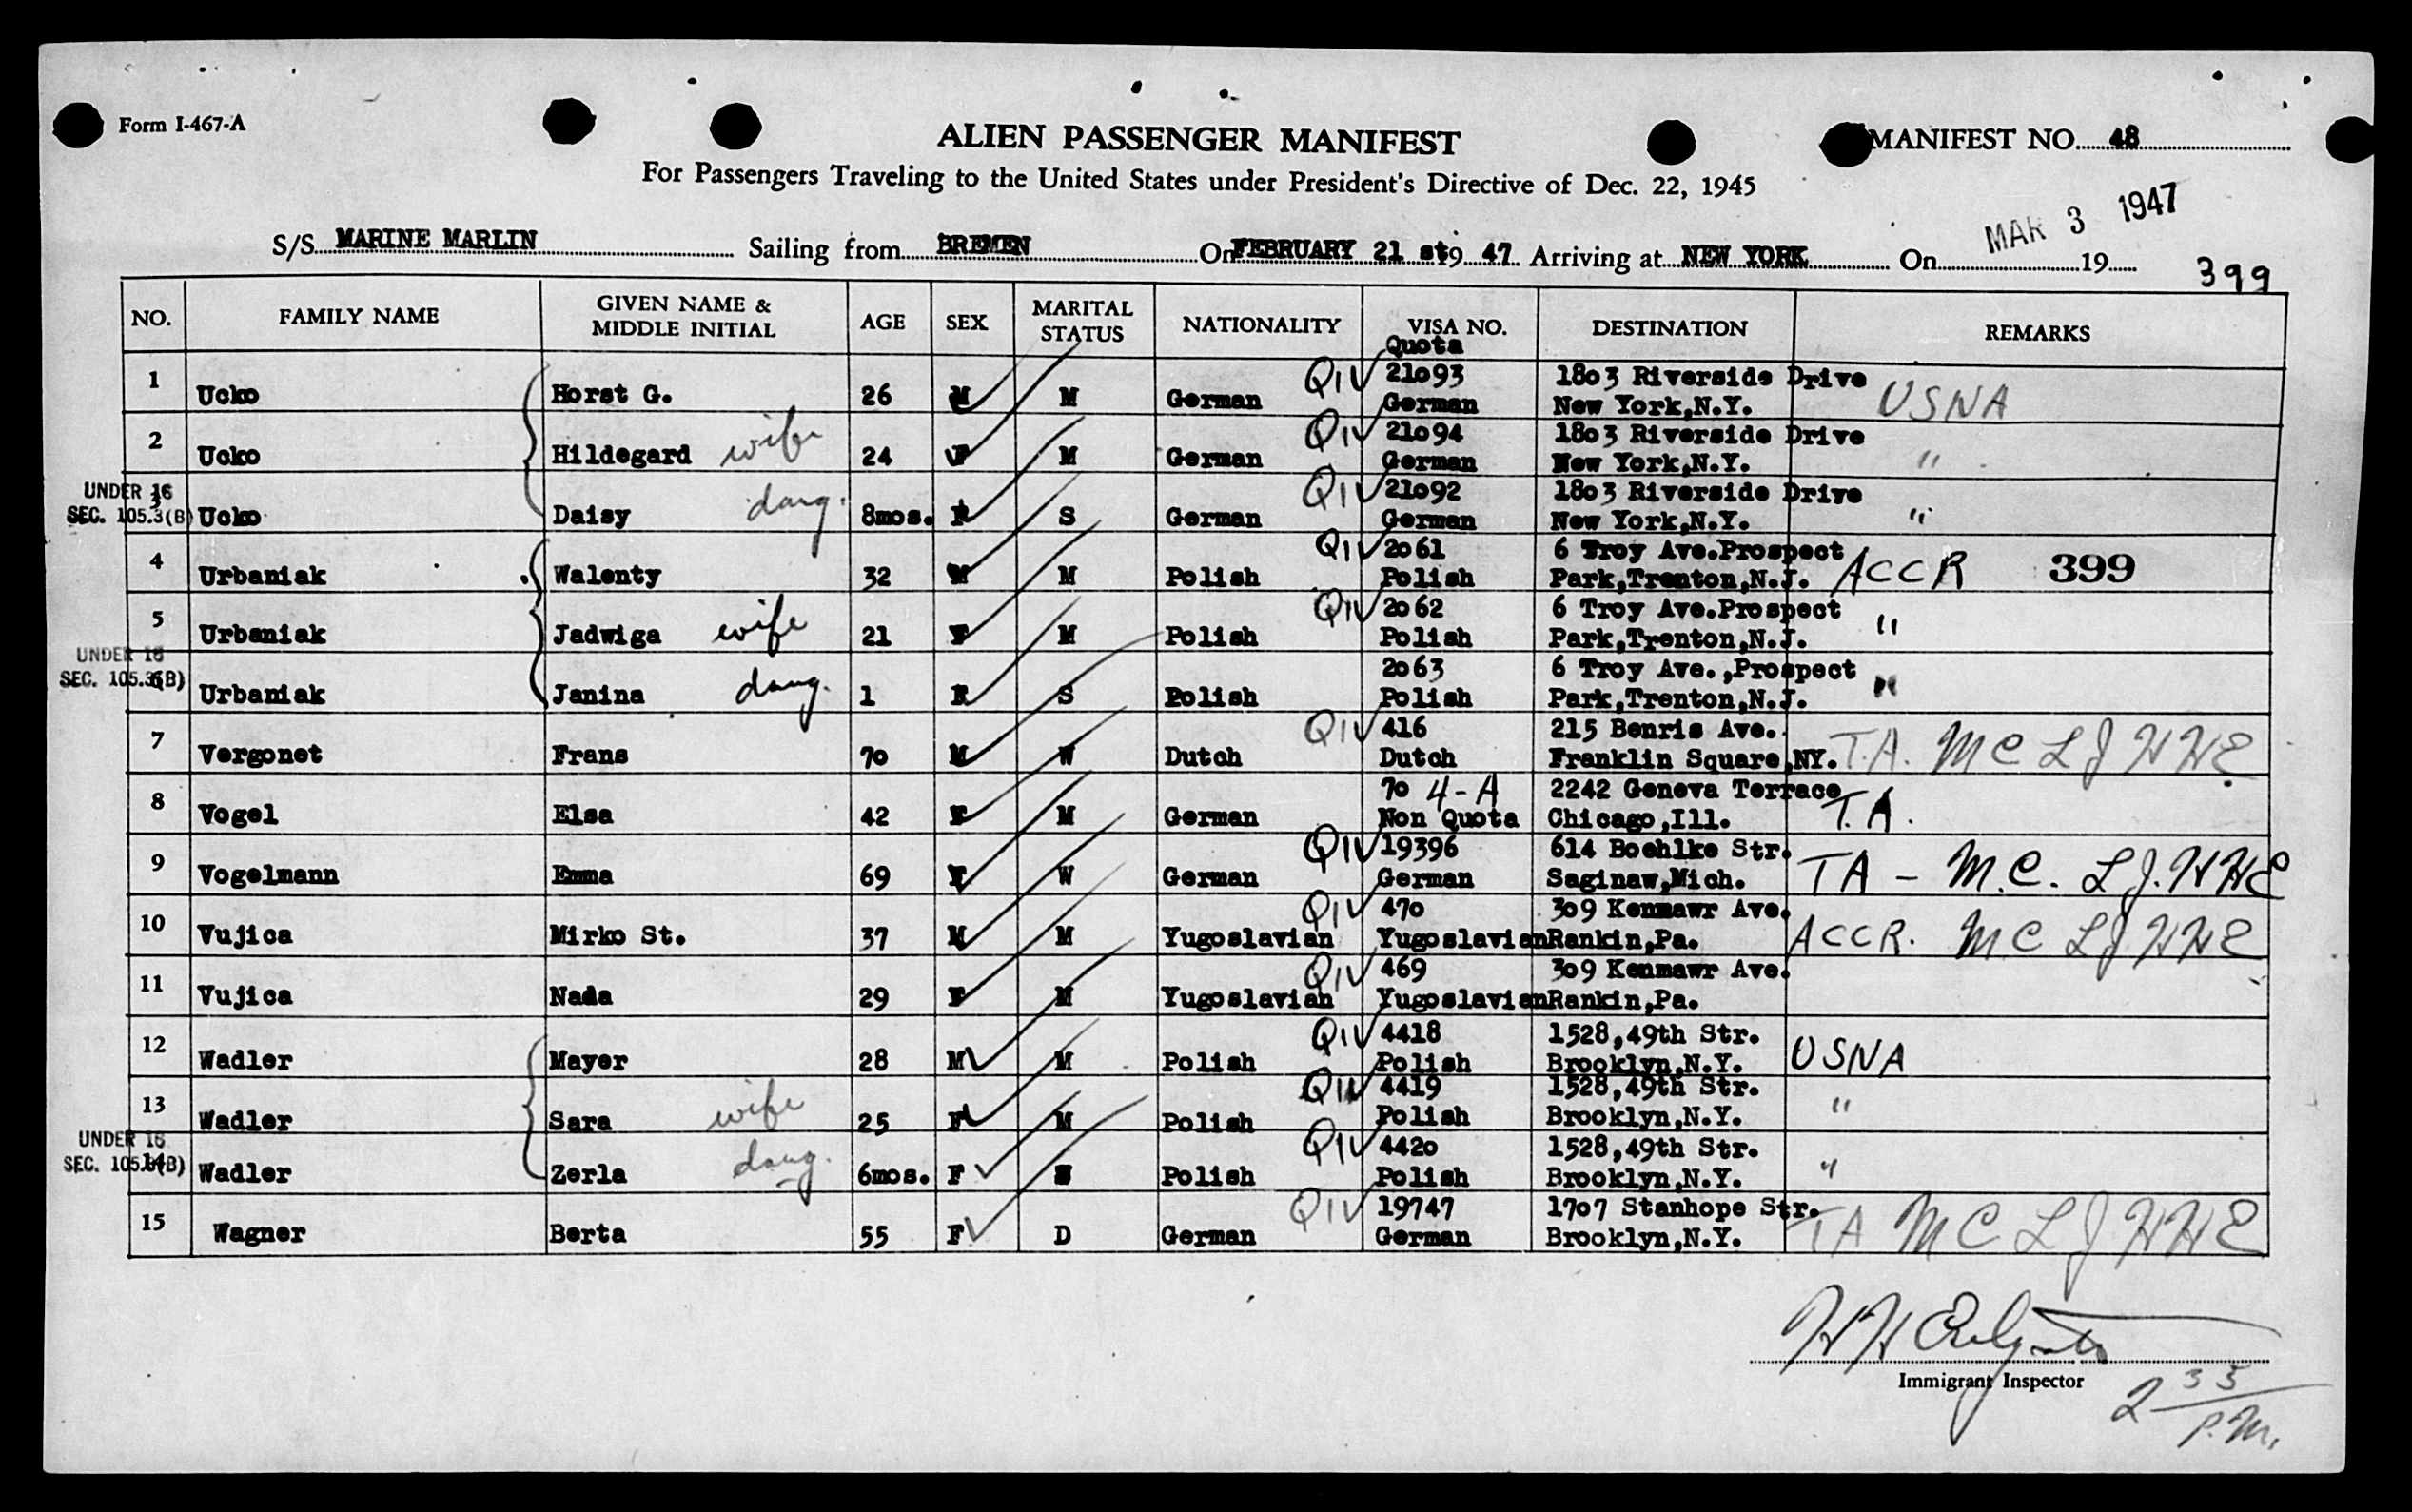 Form I-467-A
ALIEN PASSENGER MANIFEST
MANIFEST NO. 48
For Passengers Traveling to the United States under President's Directive of Dec. 22, 1945
MAR 3 1947
S/S MARINE MARLIN Sailing from BREMEN On FEBRUARY 21 st 9 47 Arriving at NEW YORK On 19
399
NO. FAMILY NAME GIVEN NAME & MIDDLE INITIAL AGE SEX MARITAL STATUS NATIONALITY VISA NO. DESTINATION REMARKS
Quota
1 Ucko Horst G. 26 M M German QIV 21093 German 1803 Riverside Drive New York,N.Y. USNA
2 Ucko Hildegard wife 24 F M German QIV 21094 German 1803 Riverside Drive New York,N.Y. "
UNDER 16
SEC. 105.3(B)
3 Ucko Daisy daug. 8mos. F S German QIV 21092 German 1803 Riverside Drive New York,N.Y. "
4 Urbaniak Walenty 32 M M Polish QIV 2061 Polish 6 Troy Ave.Prospect Park,Trenton,N.J. ACCR 399
5 Urbaniak Jadwiga wife 21 F M Polish QIV 2062 Polish 6 Troy Ave.Prospect Park,Trenton,N.J. "
UNDER 16
SEC. 105.3(B)
6 Urbaniak Janina daug. 1 F S Polish 2063 Polish 6 Troy Ave.,Prospect Park,Trenton,N.J. "
7 Vergonet Frans 70 M W Dutch QIV 416 Dutch 215 Benris Ave. Franklin Square,NY. T.A. MC LJ HHE
8 Vogel Elsa 42 F M German 70 4-A Non Quota 2242 Geneva Terrace Chicago,Ill. T.A.
9 Vogelmann Emma 69 F W German QIV 19396 German 614 Boehlke Str. Saginaw,Mich. TA - M.C. LJ. HHE
10 Vujica Mirko St. 37 M M Yugoslavian QIV 470 Yugoslavian 309 Kenmawr Ave. Rankin,Pa. ACCR. MC LJ HHE
11 Vujica Nada 29 F M Yugoslavian QIV 469 Yugoslavian 309 Kenmawr Ave. Rankin,Pa.
12 Wadler Mayer 28 M M Polish QIV 4418 Polish 1528,49th Str. Brooklyn,N.Y. USNA
13 Wadler Sara wife 25 F M Polish QIV 4419 Polish 1528,49th Str. Brooklyn,N.Y. "
UNDER 16
SEC. 105.3(B)
14 Wadler Zerla daug. 6mos. F S Polish QIV 4420 Polish 1528,49th Str. Brooklyn,N.Y. "
15 Wagner Berta 55 F D German QIV 19747 German 1707 Stanhope Str. Brooklyn,N.Y. TA MC LJ HHE
Immigrant Inspector
2 35/P.M.